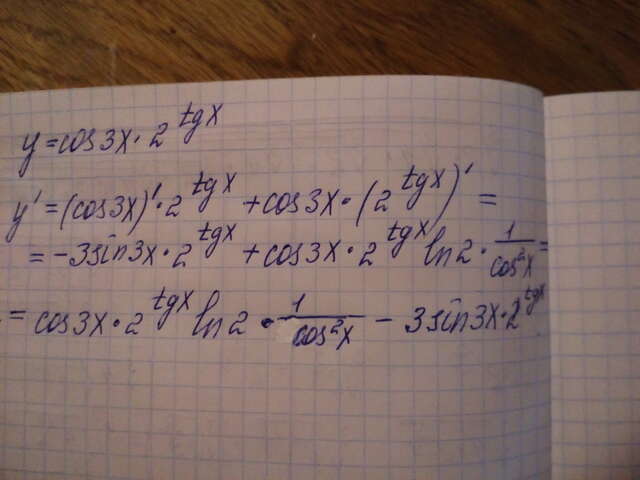 y = cos3x · 2^tgx
y' = (cos3x)' · 2^tgx + cos3x · (2^tgx)' =
= -3sin3x · 2^tgx + cos3x · 2^tgx ln2 · 1/cos²x =
= cos3x · 2^tgx ln2 · 1/cos²x - 3sin3x · 2^tgx